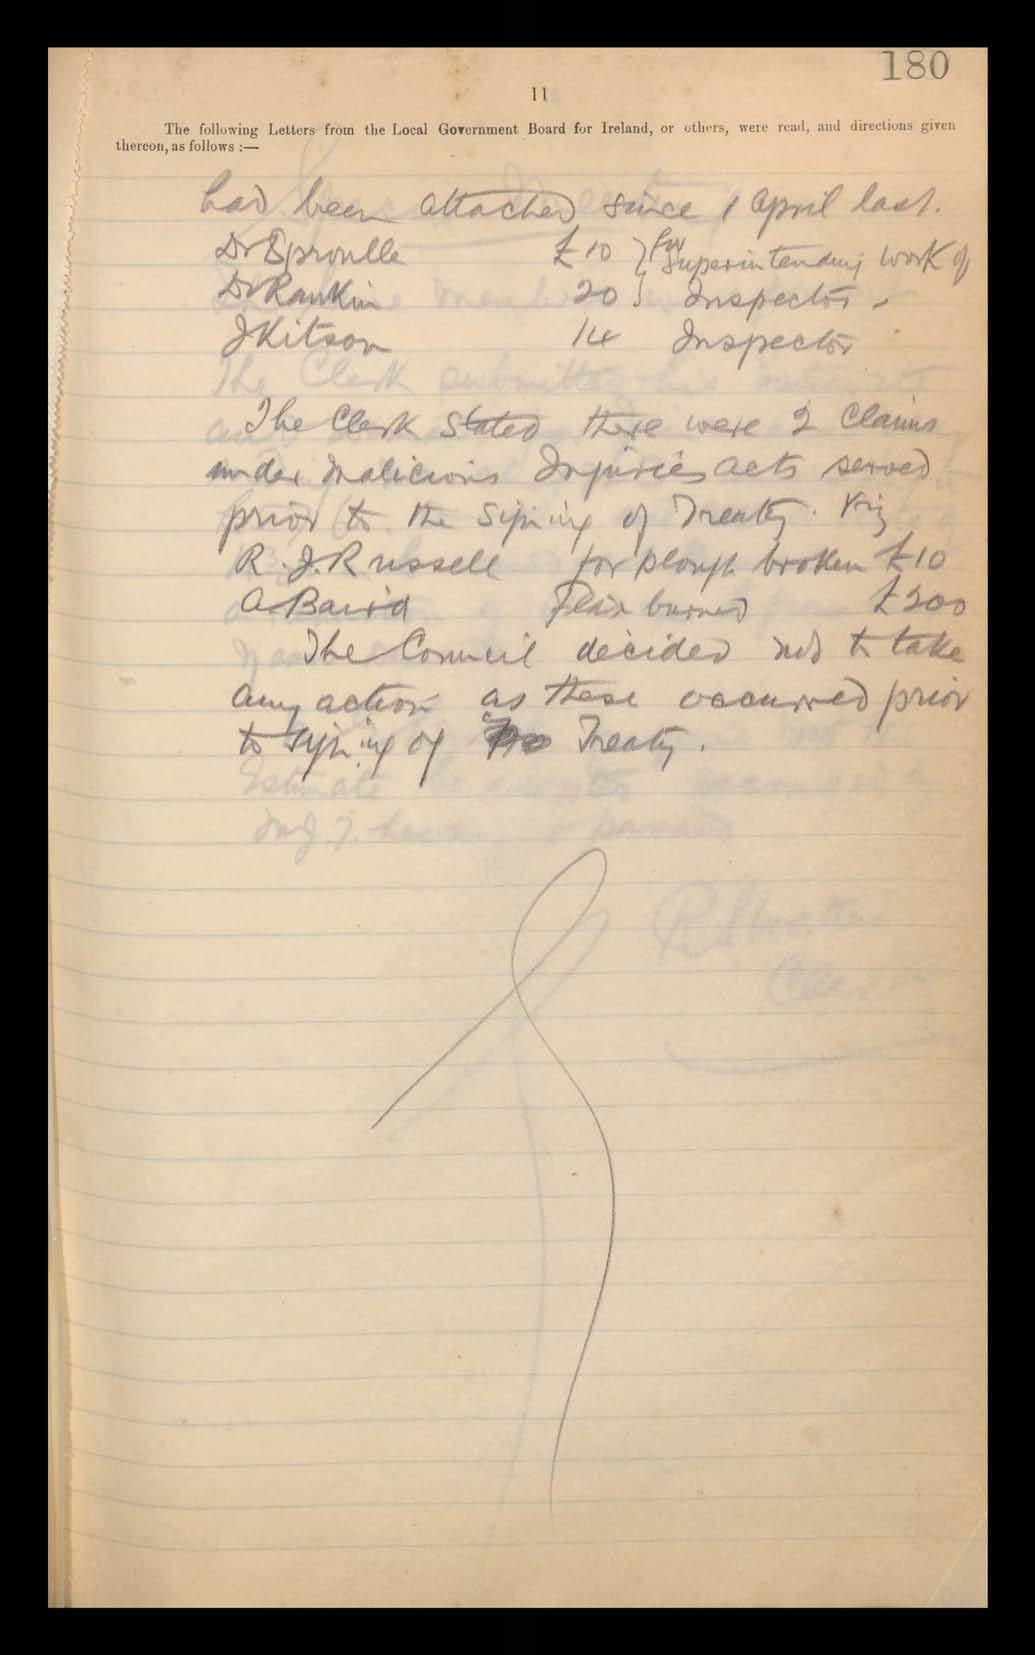 180
11
The following Letters from the Local Government Board for Ireland, or others, were read, and directions given
thereon, as follows :—
had been attached since 1 April last.
Dr Sproulle £10 } for Superintending work of
Dr Rankin 20 } Inspector
J Kitson 14 Inspector
The Clerk stated there were 2 Claims
under Malicious Injuries Acts served
prior to the signing of Treaty. Viz
R. J. Russell for plough broken £10
A Baird Flax burned £200
The Council decided not to take
any action as these occurred prior
to signing of Treaty.